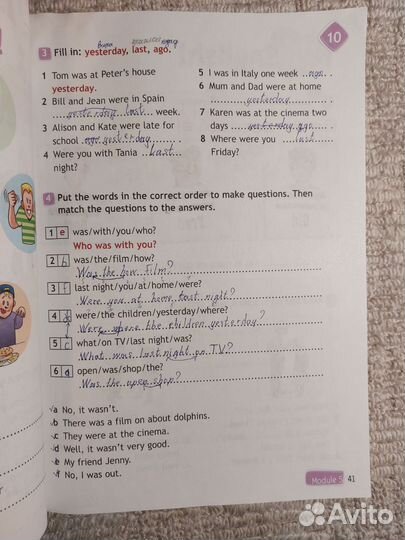 вчера последний назад
10
3 Fill in: yesterday, last, ago.
1 Tom was at Peter's house
yesterday.
2 Bill and Jean were in Spain
yesterday last week.
3 Alison and Kate were late for
school ago yesterday.
4 Were you with Tania last
night?
5 I was in Italy one week ago.
6 Mum and Dad were at home
yesterday.
7 Karen was at the cinema two
days yesterday ago.
8 Where were you last
Friday?
4 Put the words in the correct order to make questions. Then
match the questions to the answers.
1 e was/with/you/who?
Who was with you?
2 b was/the/film/how?
Was the how film?
3 f last night/you/at/home/were?
Were you at home last night?
4 were/the children/yesterday/where?
Were where the children yesterday?
5 c what/on TV/last night/was?
What was last night on TV?
6 a open/was/shop/the?
Was the open shop?
a No, it wasn't.
b There was a film on about dolphins.
c They were at the cinema.
d Well, it wasn't very good.
e My friend Jenny.
f No, I was out.
Module 5 41
Avito